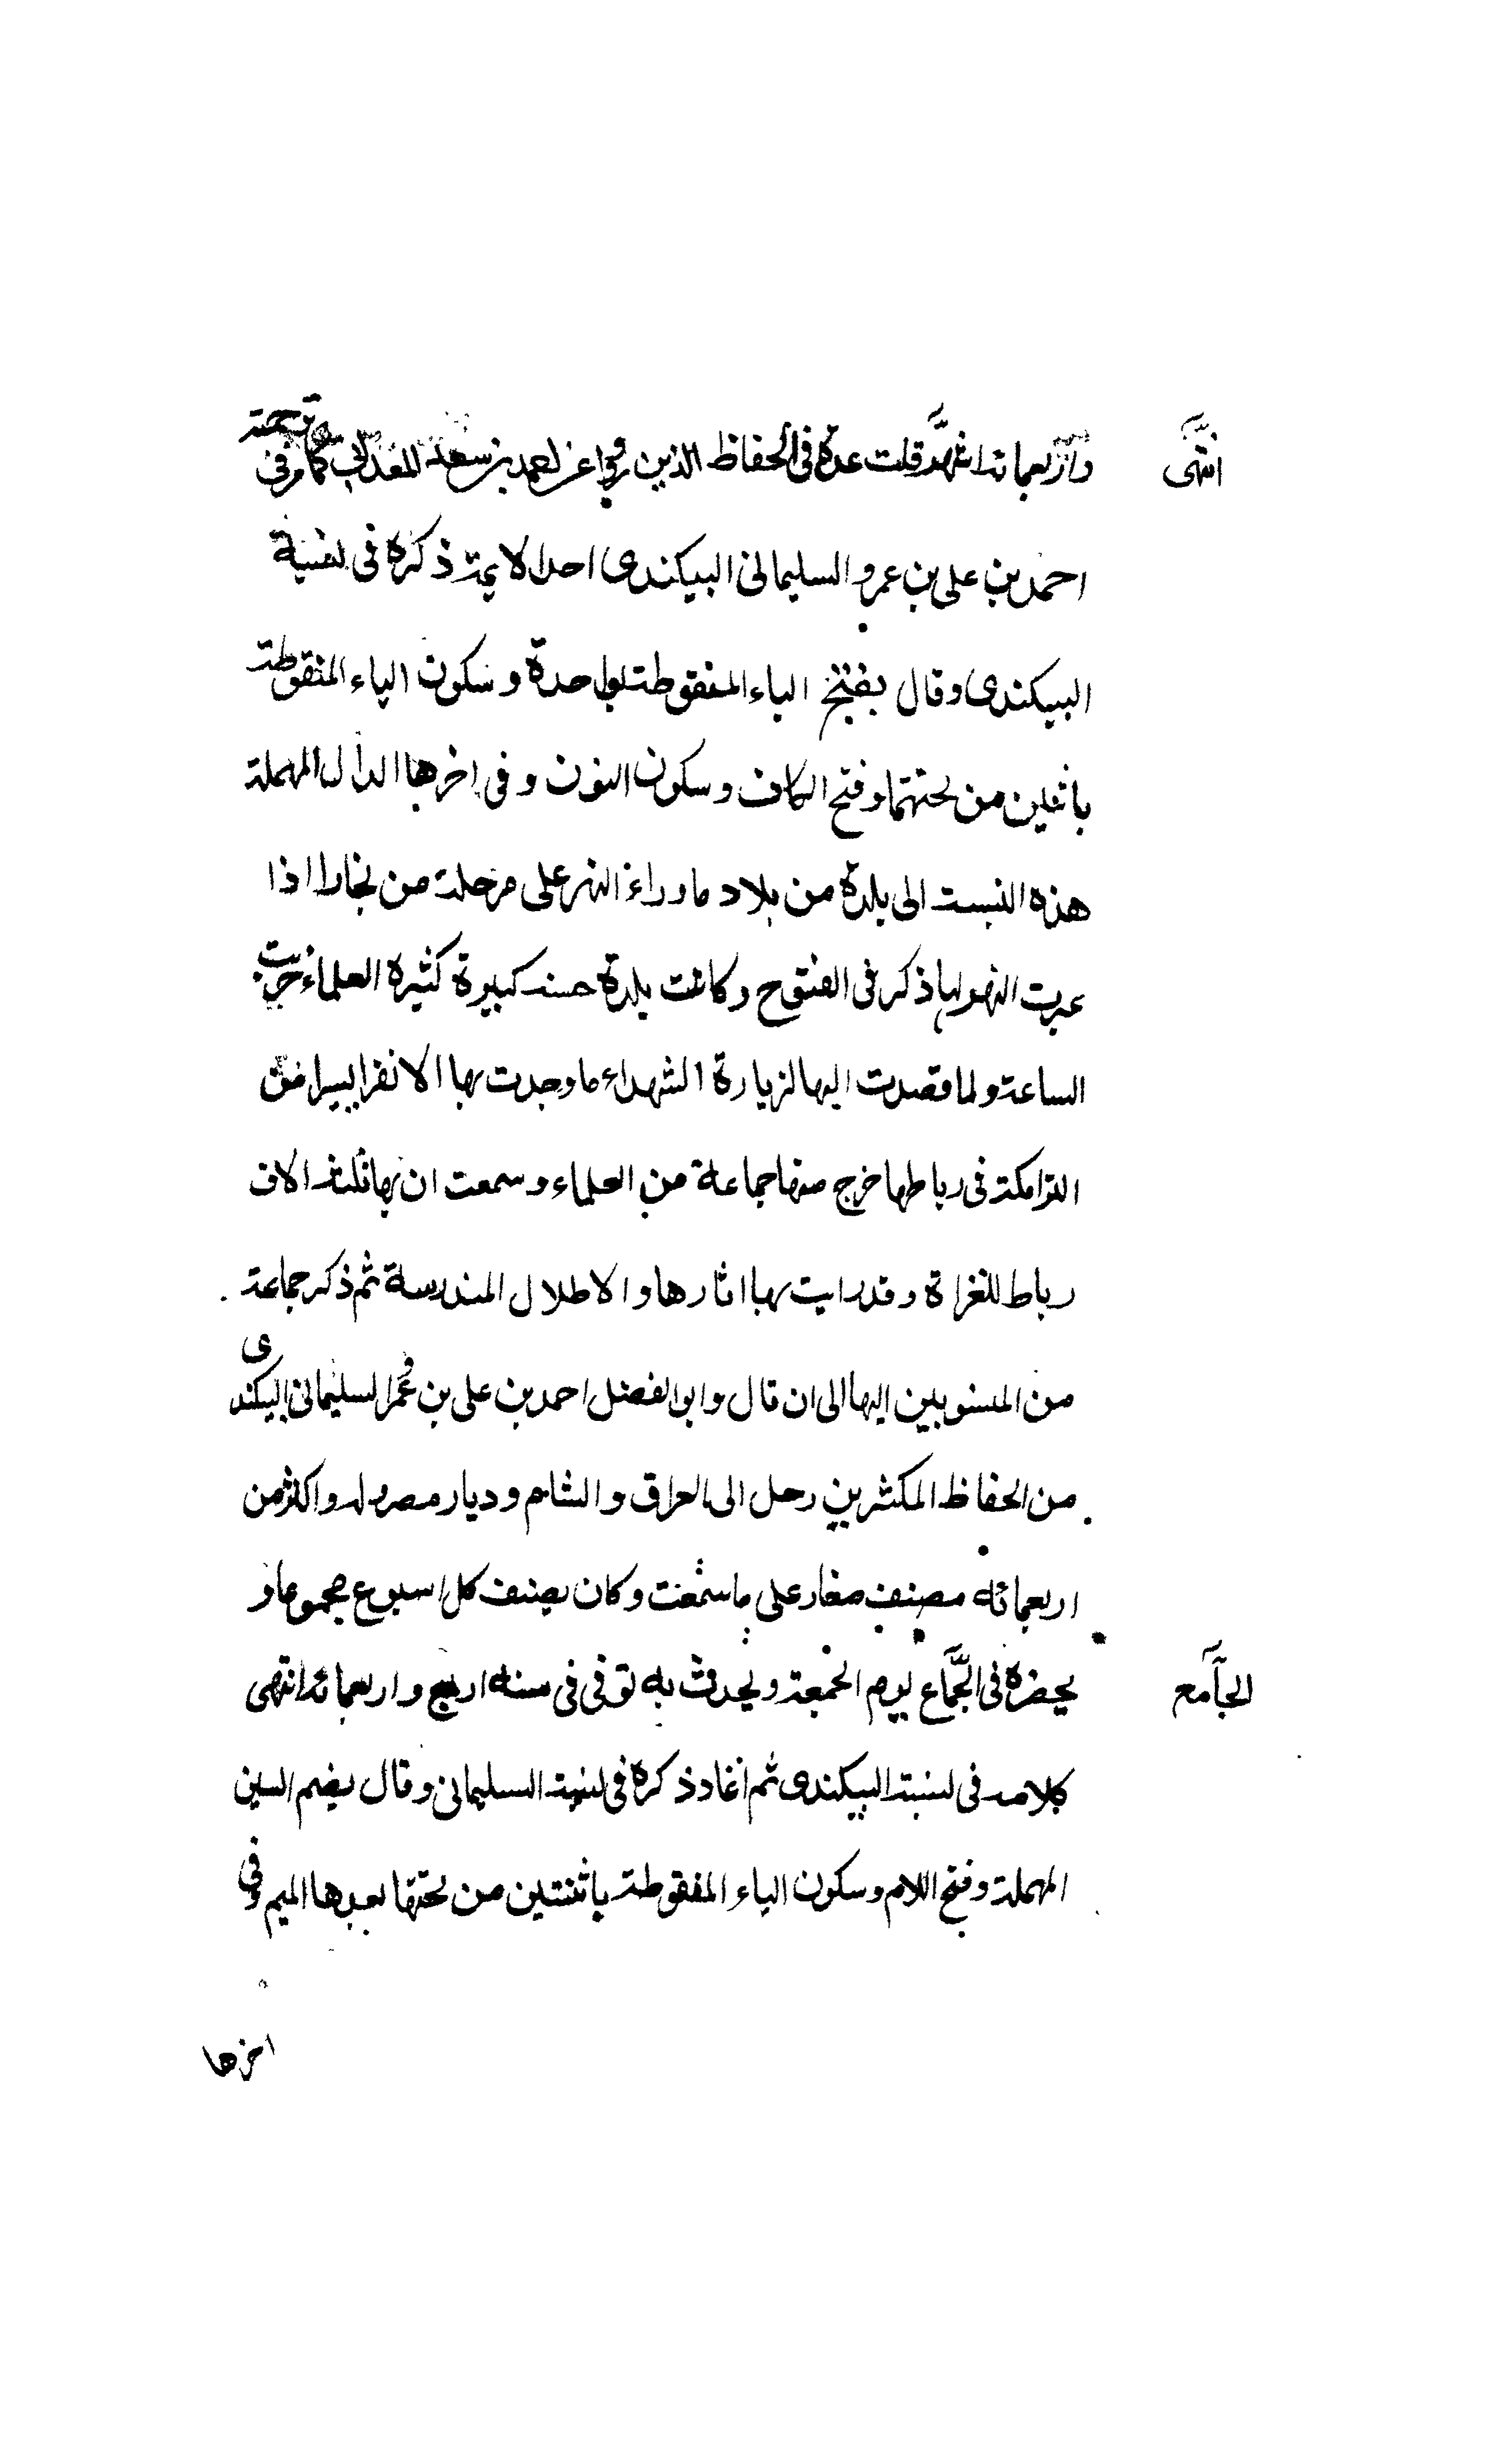 واربعمائة انتهى قلت عدة في الحفاظ الذين رووا عن احمد بن سعد المعداني كما مر في ترجمته
انتهى
احمد بن علي بن عمرو السليماني البيكندى احد الايمة ذكره في نسبة
البيكندى وقال بفتح الباء المنقوطة بواحدة وسكون الياء المنقوطة
باثنين من تحتهما وفتح الكاف وسكون النون وفي اخرها الدال المهملة
هذه النسبة الى بلدة من بلاد ماوراء النهر على مرحلة من بخارا اذا
عبرت النهر لها ذكر في الفتوح وكانت بلدة حسنة كبيرة كثيرة العلماء خربت
الساعة ولما قصدت اليها لزيارة الشهداء ما وجدت بها الا نفرا يسيرا من
التراكمة في رباطها خرج منها جماعة من العلماء وسمعت ان بها ثلثة الاف
رباط للغزاة وقد رايت بها اثارها والاطلال المندرسة ثم ذكر جماعة
من المنسوبين اليها الى ان قال وابو الفضل احمد بن علي بن عمرو السليماني البيكندى
من الحفاظ المكثرين رحل الى العراق والشام وديار مصر وله اكثر من
اربعمائة مصنف صغار على ما سمعت وكان يصنف كل اسبوع مجموعا و
يحضره في الجماع يوم الجمعة ويحدث به توفي في سنة اربع واربعمائة انتهى
الجامع
كلامه في نسبة البيكندى ثم اعاد ذكره في نسبة السليماني وقال بضم السين
المهملة وفتح اللام وسكون الياء المنقوطة باثنتين من تحتها بعدها الميم وفي
اخرها